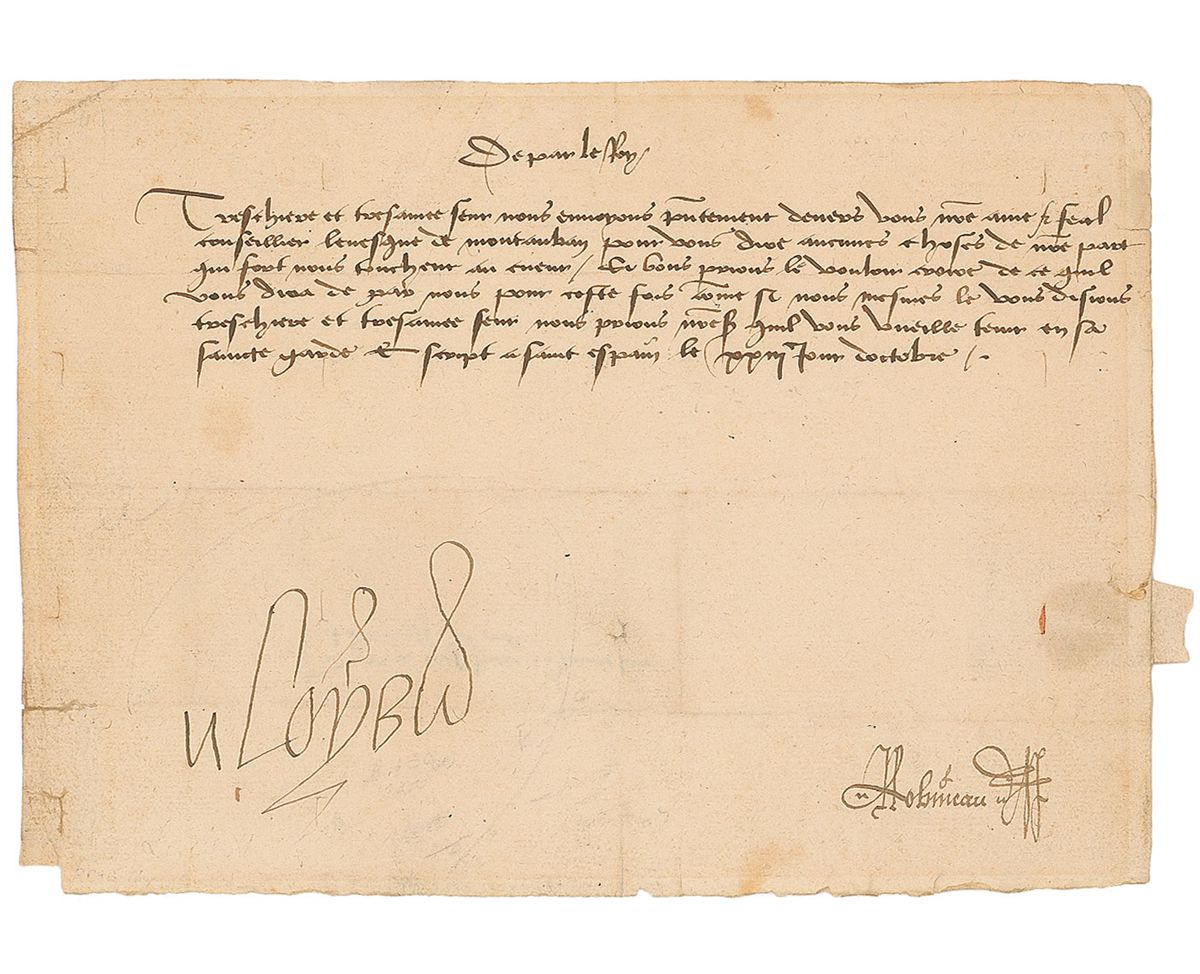 De par le Roy
Treschiere et tresamee seur nous envoyons pntement devers vous nre ame & feal
conseillier levesque de montauban pour vous dire aucunes choses de nre part
qui fort nous touchent au cueur / Si vous prions le vouloir croire de ce quil
vous dira de par nous pour ceste fois come si nous mesmes le vous disions
treschiere et tresamee seur nous prions nres quil vous vueille tenir en sa
saincte garde Escript a saint espain le xxiii Jour doctobre /.
Loys
Robineau